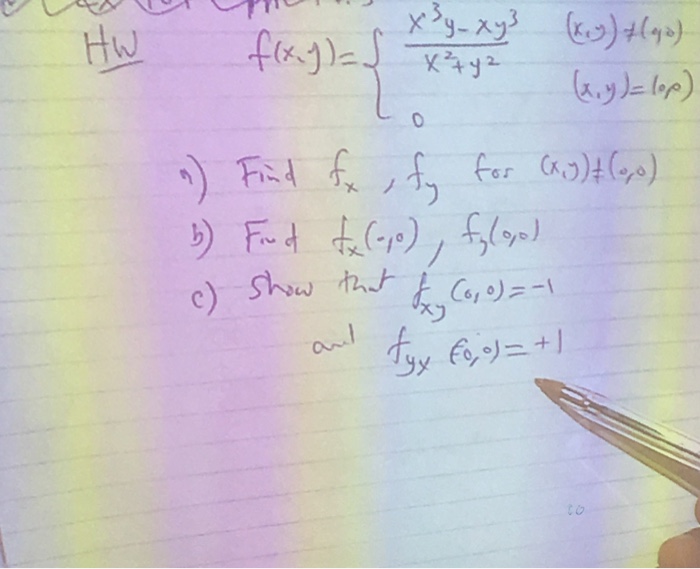 HW f(x,y)= { x³y-xy³ / x²+y² (x,y)≠(0,0)
0 (x,y)=(0,0)
a) Find fx , fy for (x,y)≠(0,0)
b) Find fx(0,0), fy(0,0)
c) Show that fxy(0,0)=-1
and fyx(0,0)=+1